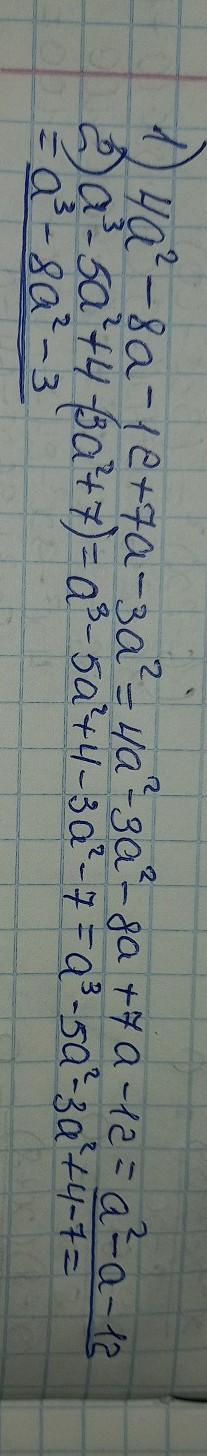 1) 4a² - 8a - 12 + 7a - 3a² = 4a² - 3a² - 8a + 7a - 12 = a² - a - 12
2) a³ - 5a² + 4 - (3a² + 7) = a³ - 5a² + 4 - 3a² - 7 = a³ - 5a² - 3a² + 4 - 7 =
= a³ - 8a² - 3